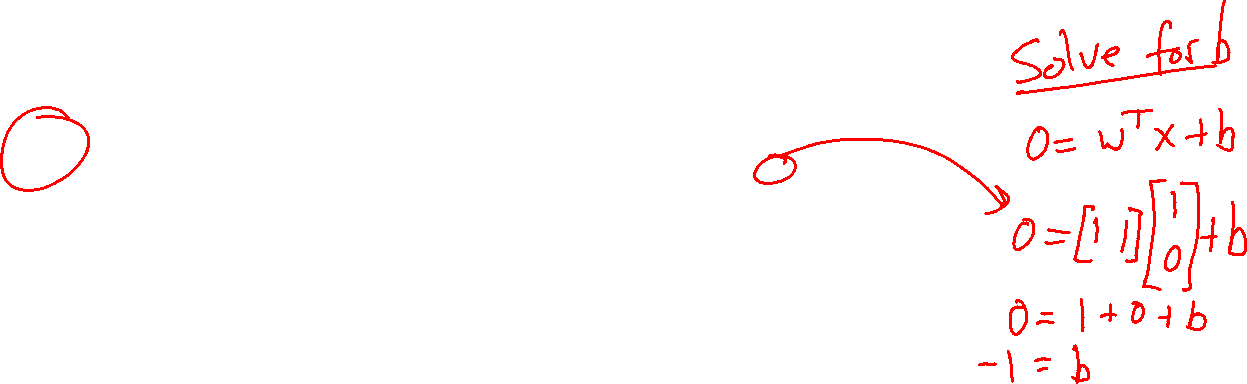 Solve for b
0 = wᵀx + b
0 = [1 1][1 0] + b
0 = 1 + 0 + b
-1 = b